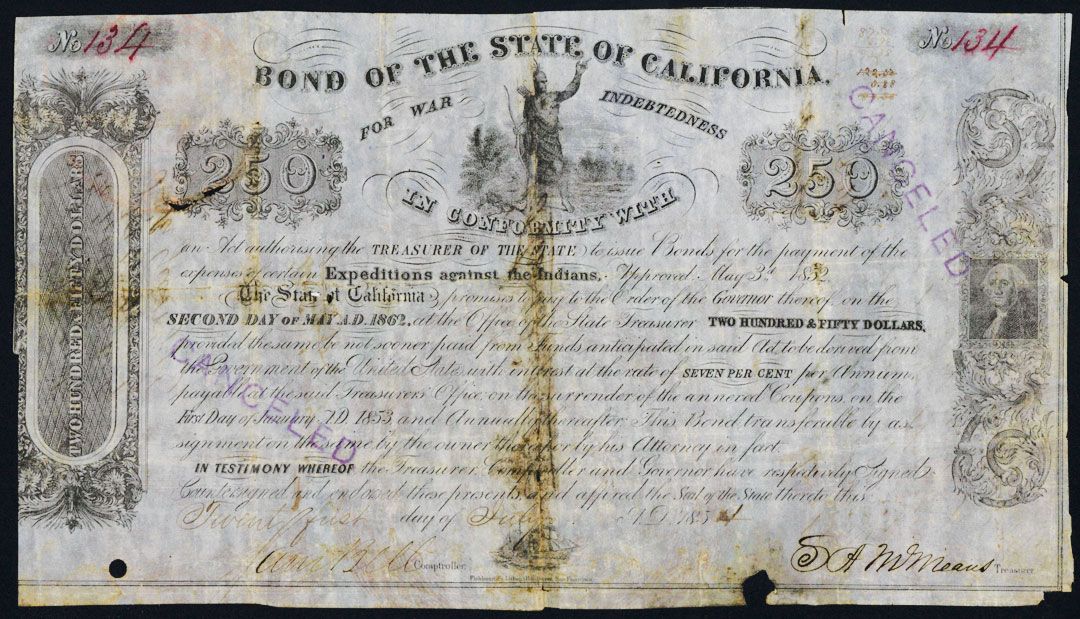 No 134
No 134
BOND OF THE STATE OF CALIFORNIA.
FOR WAR INDEBTEDNESS
250
250
IN CONFORMITY WITH
an Act authorising the TREASURER OF THE STATE to issue Bonds for the payment of the
expenses of certain Expeditions against the Indians, Approved May 3d 1852
The State of California promises to pay to the Order of the Governor thereof on the
SECOND DAY OF MAY A.D. 1862, at the Office of the State Treasurer TWO HUNDRED & FIFTY DOLLARS,
provided the same be not sooner paid from Funds anticipated in said Act, to be derived from
the Government of the United States, with interest at the rate of SEVEN PER CENT per Annum,
payable at the said Treasurers Office, on the surrender of the annexed Coupons, on the
First Day of January A.D. 1853 and Annually thereafter. This Bond transferable by as
signment on the same by the owner thereof or by his Attorney in fact.
IN TESTIMONY WHEREOF the Treasurer Comptroller and Governor have respectively Signed
Countersigned and endorsed these presents and affixed the Seal of the State thereto this
Twenty first day of July A.D. 1854
Saml Bell Comptroller.
S A McMeans Treasurer
TWO HUNDRED & FIFTY DOLLARS
CANCELED
CANCELED